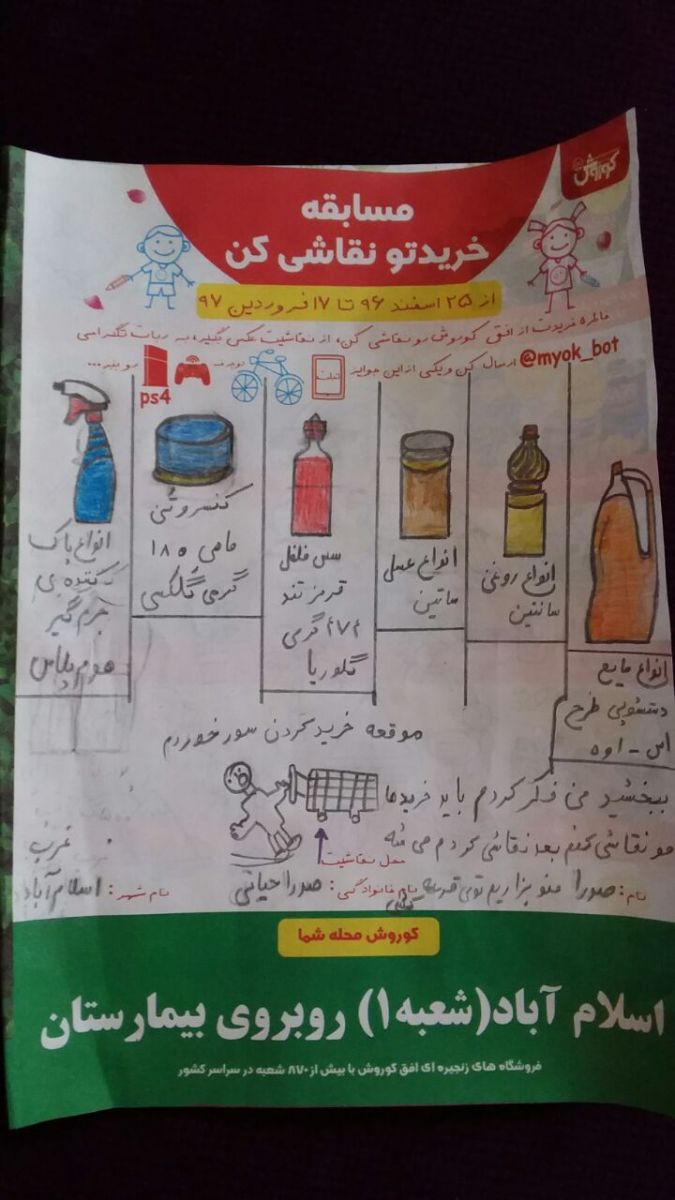 کوروش
مسابقه
خریدتو نقاشی کن
از ۲۵ اسفند ۹۶ تا ۱۷ فروردین ۹۷
خاطره خریدت از افق کوروش رو نقاشی کن، از نقاشیت عکس بگیر، به ربات تلگرامی
@myok_bot ارسال کن و یکی از این جوایز تبلت دوچرخه رو ببر...
ps4
انواع پاک
کننده ی
جرم گیر
هوم پلاس
کنسرو تن
ماهی ۱۸۰
گرمی گلکسی
سس فلفل
قرمز تند
گرمی
گلوریا
انواع عسل
ساتین
انواع روغن
سانتین
انواع مایع
دستشویی طرح
اس - اوه
موقعه خرید کردن سور خوردم
ببخشید من فکر کردم باید خریدها
مو نقاشی کنم بعد نقاشی کردم
محل نقاشیت
غرب
نام: صدرا
نام خانوادگی: صدرا حیاتی
نام شهر: اسلام آباد
کوروش محله شما
اسلام آباد(شعبه ۱) روبروی بیمارستان
فروشگاه های زنجیره ای افق کوروش با بیش از ۸۷۰ شعبه در سراسر کشور